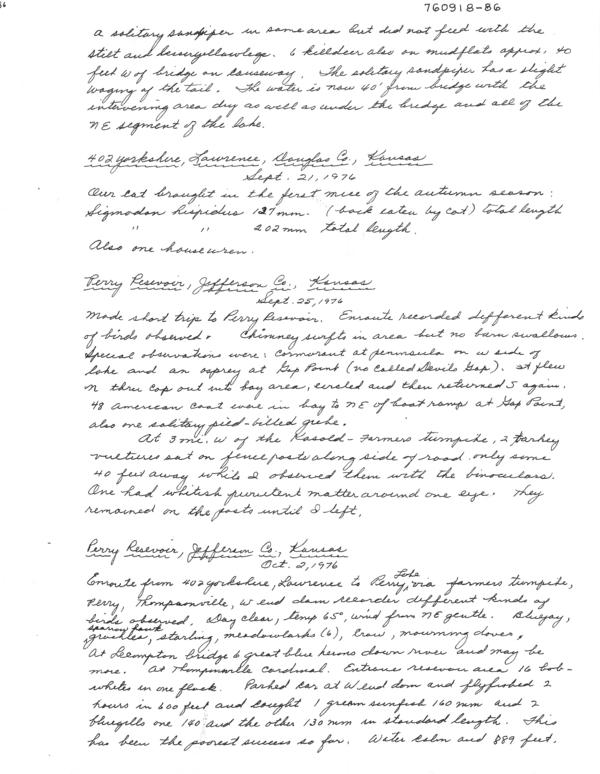 760918-86
a solitary sandpiper in same area but did not feed with the
stilt and lesser yellowlegs. 6 killdeer also on mudflats approx. 40
feet W of bridge on causeway. The solitary sandpiper has a slight
waging of the tail. The water is now 40' from bridge with the
intervening area dry as well as under the bridge and all of the
NE segment of the lake.
402 Yorkshire, Lawrence, Douglas Co., Kansas
Sept. 21, 1976
Our cat brought in the first mice of the autumn season:
Sigmodon hispidus 127 mm. (back eaten by cat) total length
" " 202 mm total length.
Also one house wren.
Perry Resevoir, Jefferson Co., Kansas
Sept. 25, 1976
Made short trip to Perry Resevoir. Enroute recorded different kinds
of birds observed. Chimney swifts in area but no barn swallows.
Special observations were: cormorant at peninsula on W side of
lake and an osprey at Gap Point (no called Devils Gap). It flew
N thru Gap out into bay area, circled and then returned S again.
48 American Coot were in bay to NE of boat ramp at Gap Point,
also one solitary pied-billed grebe.
At 3 mi. W of the Kasold-Farmers turnpike, 2 turkey
vultures sat on fence posts along side of road only some
40 feet away while I observed them with the binoculars.
One had whitish purulent matter around one eye. They
remained on the posts until I left.
Perry Resevoir, Jefferson Co., Kansas
Oct. 2, 1976
Enroute from 402 Yorkshire, Lawrence to Perry Lake, via farmers turnpike,
Perry, Thompsonville, W end dam recorder different kinds of
birds observed. Day clear, temp 65°, wind from NE gentle. Bluejay,
sparrow hawk
grackles, starling, meadowlarks (6), crow, mourning doves,
At Lecompton bridge 6 great blue herons down river and may be
more. At Thompsonville Cardinal. Entrance resevoir area 16 bob-
whites in one flock. Parked car at W end dam and flyfished 2
hours in 600 feet and caught 1 green sunfish 160 mm and 2
bluegills one 140 and the other 130 mm in standard length. This
has been the poorest success so far. Water calm and 889 feet.